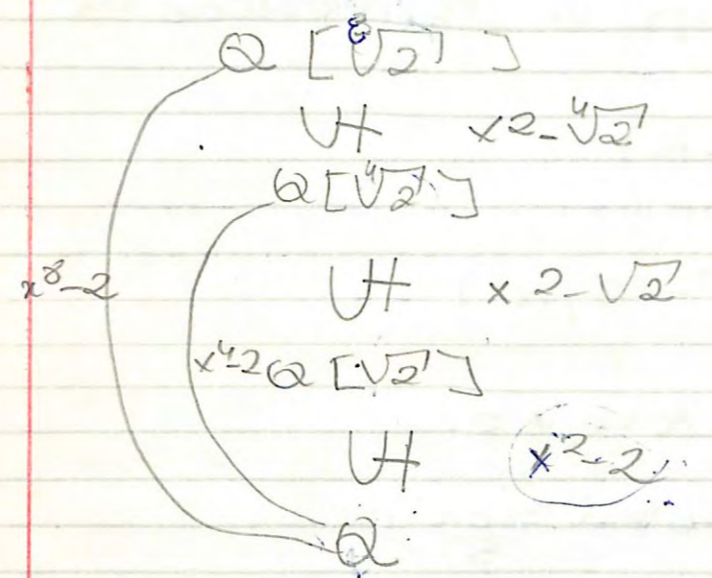 Q [⁸√2]
U+ x²-⁴√2
Q[⁴√2]
x⁸-2 U+ x²-√2
x⁴-2 Q [√2]
U+ x²-2
Q